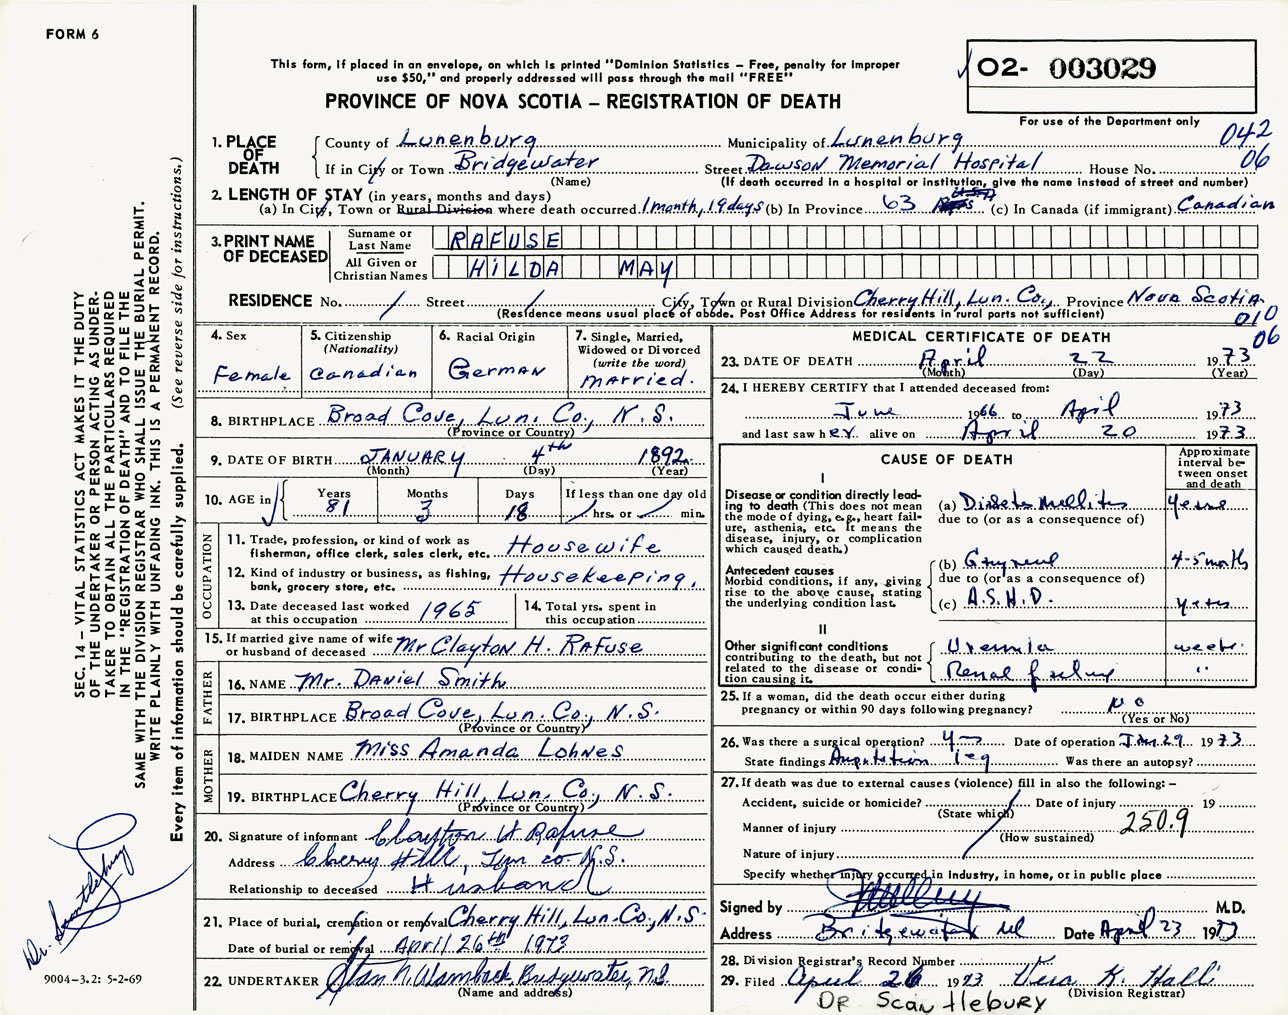 FORM 6
This form, if placed in an envelope, on which is printed "Dominion Statistics – Free, penalty for improper
use $50," and properly addressed will pass through the mail "FREE"
PROVINCE OF NOVA SCOTIA – REGISTRATION OF DEATH
02- 003029
For use of the Department only
042
06
1. PLACE OF DEATH
County of Lunenburg Municipality of Lunenburg
If in City or Town Bridgewater Street Dawson Memorial Hospital House No.
(Name) (If death occurred in a hospital or institution, give the name instead of street and number)
2. LENGTH OF STAY (in years, months and days)
(a) In City, Town or Rural Division where death occurred 1 month, 19 days (b) In Province 63 (c) In Canada (if immigrant) Canadian
3. PRINT NAME OF DECEASED
Surname or Last Name RAFUSE
All Given or Christian Names HILDA MAY
RESIDENCE No. / Street / City, Town or Rural Division Cherry Hill, Lun. Co., Province Nova Scotia
(Residence means usual place of abode. Post Office Address for residents in rural parts not sufficient)
010
06
4. Sex
Female
5. Citizenship
(Nationality)
Canadian
6. Racial Origin
German
7. Single, Married,
Widowed or Divorced
(write the word)
Married.
8. BIRTHPLACE Broad Cove, Lun. Co., N.S.
(Province or Country)
9. DATE OF BIRTH JANUARY 4th 1892
(Month) (Day) (Year)
10. AGE in
Years 81
Months 3
Days 18
If less than one day old
hrs. or min.
OCCUPATION
11. Trade, profession, or kind of work as
fisherman, office clerk, sales clerk, etc. Housewife
12. Kind of industry or business, as fishing,
bank, grocery store, etc. Housekeeping.
13. Date deceased last worked
at this occupation 1965
14. Total yrs. spent in
this occupation
15. If married give name of wife
or husband of deceased Mr Clayton H. Rafuse
FATHER
16. NAME Mr. Daniel Smith
17. BIRTHPLACE Broad Cove, Lun. Co., N.S.
(Province or Country)
MOTHER
18. MAIDEN NAME Miss Amanda Lohnes
19. BIRTHPLACE Cherry Hill, Lun. Co., N.S.
(Province or Country)
20. Signature of informant Clayton H Rafuse
Address Cherry Hill, Lun co. N.S.
Relationship to deceased Husband
21. Place of burial, cremation or removal Cherry Hill, Lun. Co., N.S.
Date of burial or removal April 26th 1973
22. UNDERTAKER Bridgewater, N.S.
(Name and address)
MEDICAL CERTIFICATE OF DEATH
23. DATE OF DEATH April 22 1973
(Month) (Day) (Year)
24. I HEREBY CERTIFY that I attended deceased from:
June 1966 to April 1973
and last saw her alive on April 20 1973
CAUSE OF DEATH
Approximate interval between onset and death
I
Disease or condition directly leading to death (This does not mean the mode of dying, e.g., heart failure, asthenia, etc. It means the disease, injury, or complication which caused death.)
(a) Diabetes Mellitus years
due to (or as a consequence of)
Antecedent causes
Morbid conditions, if any, giving rise to the above cause, stating the underlying condition last.
(b) Gangrene 4-5 months
due to (or as a consequence of)
(c) A.S.H.D. years
II
Other significant conditions
contributing to the death, but not related to the disease or condition causing it.
Uremia weeks
Renal failure "
25. If a woman, did the death occur either during
pregnancy or within 90 days following pregnancy? no
(Yes or No)
26. Was there a surgical operation? yes Date of operation Jan. 29 1973
State findings Amputation leg Was there an autopsy?
27. If death was due to external causes (violence) fill in also the following: –
Accident, suicide or homicide? Date of injury 19
(State which)
Manner of injury 250.9
(How sustained)
Nature of injury
Specify whether injury occurred in industry, in home, or in public place
Signed by M.D.
Address Bridgewater Date April 23 1973
28. Division Registrar's Record Number
29. Filed April 26 1973 Vera K. Hall
(Division Registrar)
DR SCANTLEBURY
SEC. 14 – VITAL STATISTICS ACT MAKES IT THE DUTY
OF THE UNDERTAKER OR PERSON ACTING AS UNDER-
TAKER TO OBTAIN ALL THE PARTICULARS REQUIRED
IN THE "REGISTRATION OF DEATH" AND TO FILE THE
SAME WITH THE DIVISION REGISTRAR WHO SHALL ISSUE THE BURIAL PERMIT.
WRITE PLAINLY WITH UNFADING INK. THIS IS A PERMANENT RECORD.
Every item of information should be carefully supplied. (See reverse side for instructions.)
Dr. Scantlebury
9004–3.2: 5-2-69